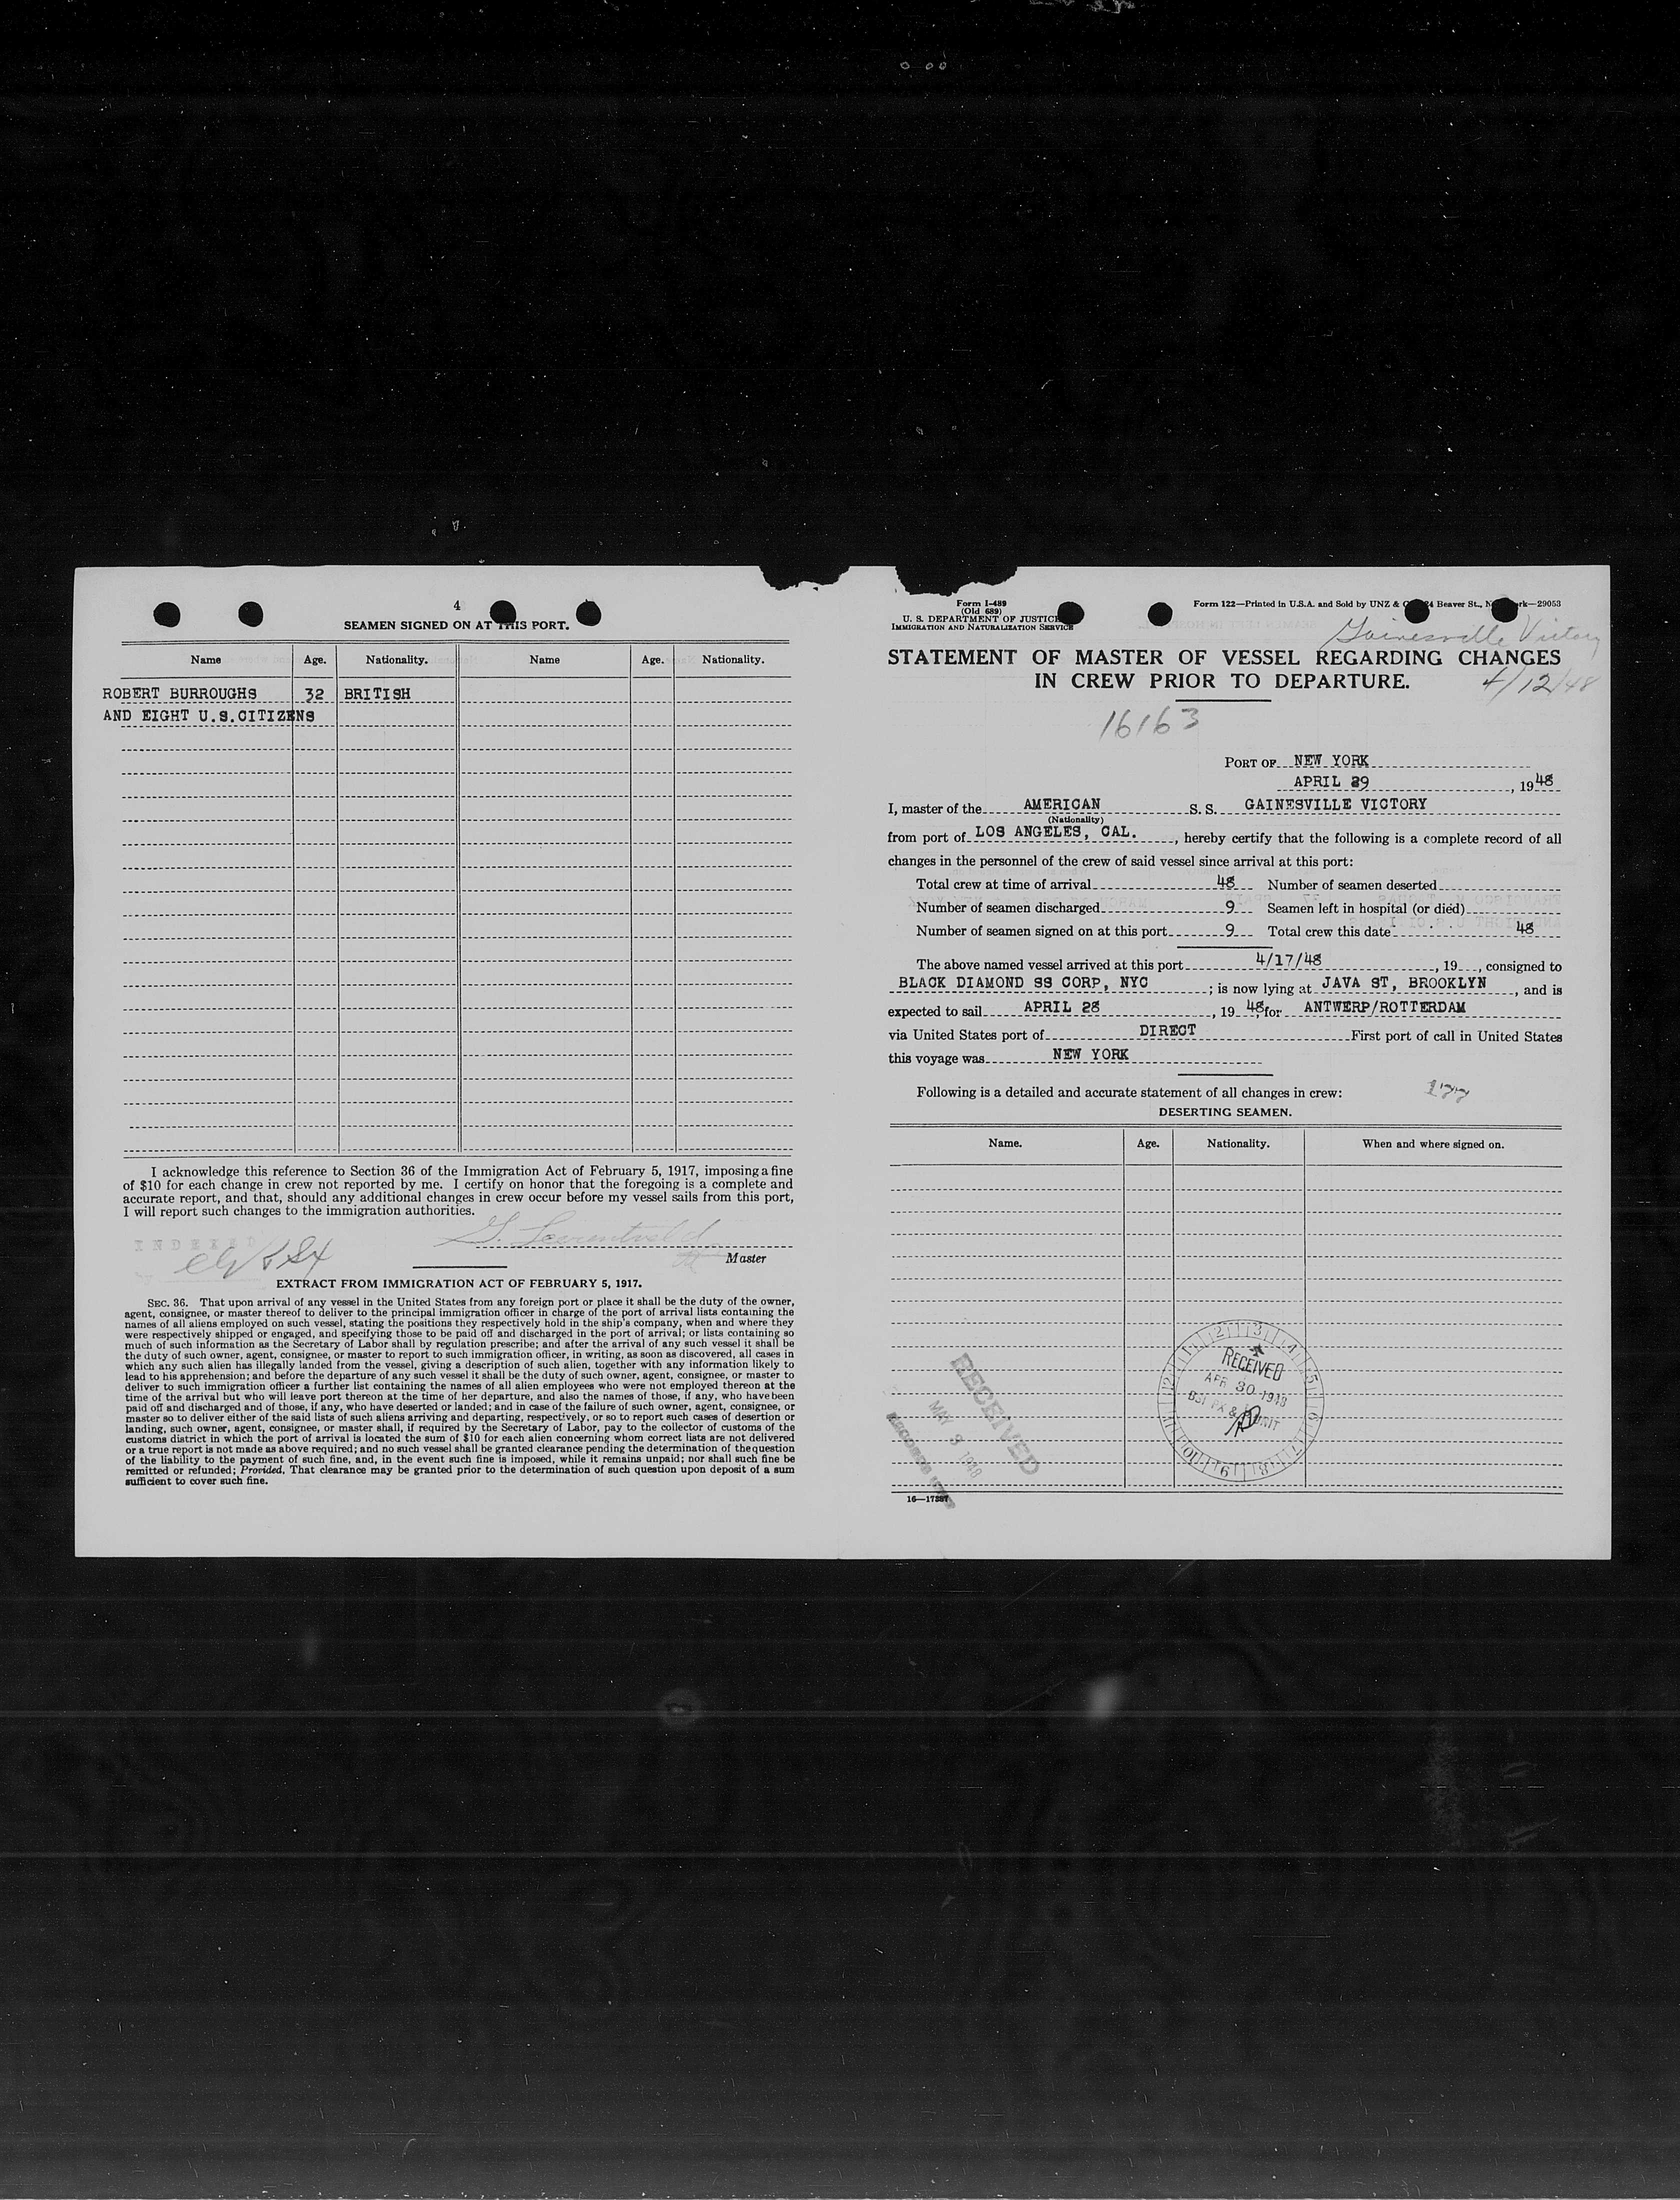 4
SEAMEN SIGNED ON AT THIS PORT.
Name Age. Nationality. Name Age. Nationality.
ROBERT BURROUGHS 32 BRITISH
AND EIGHT U.S.CITIZENS
I acknowledge this reference to Section 36 of the Immigration Act of February 5, 1917, imposing a fine
of $10 for each change in crew not reported by me. I certify on honor that the foregoing is a complete and
accurate report, and that, should any additional changes in crew occur before my vessel sails from this port,
I will report such changes to the immigration authorities.
INDEXED
Master
EXTRACT FROM IMMIGRATION ACT OF FEBRUARY 5, 1917.
SEC. 36. That upon arrival of any vessel in the United States from any foreign port or place it shall be the duty of the owner,
agent, consignee, or master thereof to deliver to the principal immigration officer in charge of the port of arrival lists containing the
names of all aliens employed on such vessel, stating the positions they respectively hold in the ship's company, when and where they
were respectively shipped or engaged, and specifying those to be paid off and discharged in the port of arrival; or lists containing so
much of such information as the Secretary of Labor shall by regulation prescribe; and after the arrival of any such vessel it shall be
the duty of such owner, agent, consignee, or master to report to such immigration officer, in writing, as soon as discovered, all cases in
which any such alien has illegally landed from the vessel, giving a description of such alien, together with any information likely to
lead to his apprehension; and before the departure of any such vessel it shall be the duty of such owner, agent, consignee, or master to
deliver to such immigration officer a further list containing the names of all alien employees who were not employed thereon at the
time of the arrival but who will leave port thereon at the time of her departure, and also the names of those, if any, who have been
paid off and discharged and of those, if any, who have deserted or landed; and in case of the failure of such owner, agent, consignee, or
master so to deliver either of the said lists of such aliens arriving and departing, respectively, or so to report such cases of desertion or
landing, such owner, agent, consignee, or master shall, if required by the Secretary of Labor, pay to the collector of customs of the
customs district in which the port of arrival is located the sum of $10 for each alien concerning whom correct lists are not delivered
or a true report is not made as above required; and no such vessel shall be granted clearance pending the determination of the question
of the liability to the payment of such fine, and, in the event such fine is imposed, while it remains unpaid; nor shall such fine be
remitted or refunded; Provided, That clearance may be granted prior to the determination of such question upon deposit of a sum
sufficient to cover such fine.
Form I-489
(Old 689)
U. S. DEPARTMENT OF JUSTICE
IMMIGRATION AND NATURALIZATION SERVICE
Form 122—Printed in U.S.A. and Sold by UNZ & Beaver St., 29053
Gainesville Victory
STATEMENT OF MASTER OF VESSEL REGARDING CHANGES
IN CREW PRIOR TO DEPARTURE.
4/12/48
16163
PORT OF NEW YORK
APRIL 29, 1948
I, master of the AMERICAN S. S. GAINESVILLE VICTORY
(Nationality)
from port of LOS ANGELES, CAL., hereby certify that the following is a complete record of all
changes in the personnel of the crew of said vessel since arrival at this port:
Total crew at time of arrival 48 Number of seamen deserted
Number of seamen discharged 9 Seamen left in hospital (or died)
Number of seamen signed on at this port 9 Total crew this date 48
The above named vessel arrived at this port 4/17/48, 19 , consigned to
BLACK DIAMOND SS CORP, NYC ; is now lying at JAVA ST, BROOKLYN, and is
expected to sail APRIL 28, 1948, for ANTWERP/ROTTERDAM
via United States port of DIRECT First port of call in United States
this voyage was NEW YORK
Following is a detailed and accurate statement of all changes in crew: 177
DESERTING SEAMEN.
Name. Age. Nationality. When and where signed on.
RECEIVED
APR 30 1948
RECEIVED
MAY 3 1948